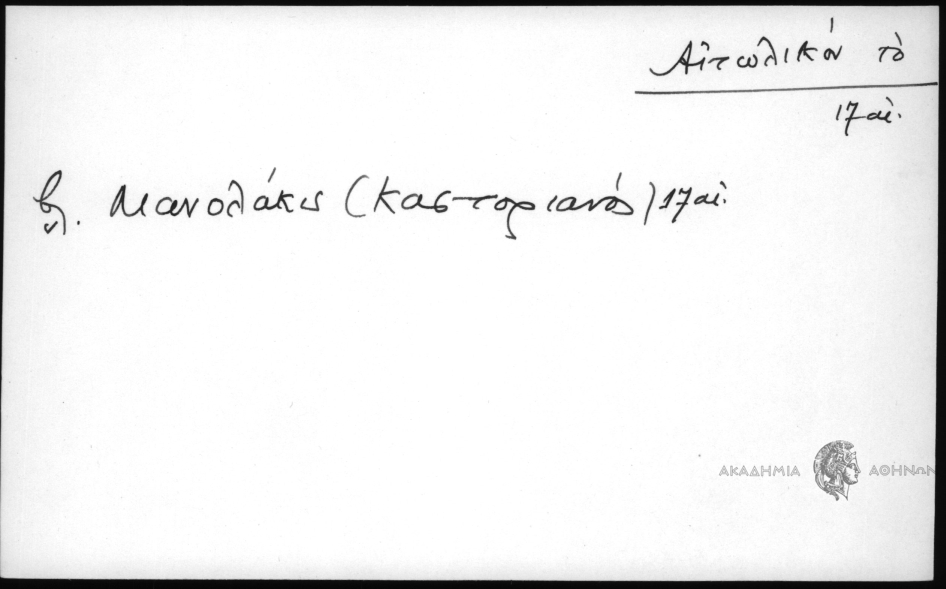 Αἰτωλικόν τὸ
17 αἰ.
βλ. Μανολάκις (Καστοριανός) 17 αἰ.
ΑΚΑΔΗΜΙΑ ΑΘΗΝΩΝ